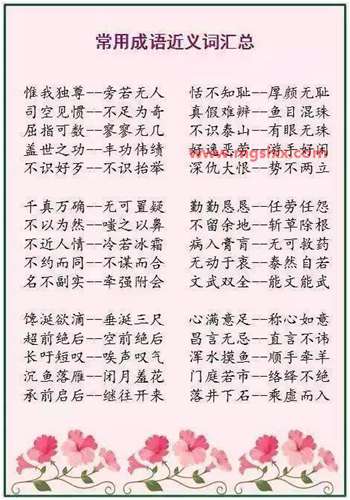 常用成语近义词汇总
惟我独尊--旁若无人 恬不知耻--厚颜无耻
司空见惯--不足为奇 真假难辨--鱼目混珠
屈指可数--寥寥无几 不识泰山--有眼无珠
盖世之功--丰功伟绩 好逸恶劳--游手好闲
www.mgshix.com
不识好歹--不识抬举 深仇大恨--势不两立
千真万确--无可置疑 勤勤恳恳--任劳任怨
不以为然--嗤之以鼻 不留余地--斩草除根
不近人情--冷若冰霜 病入膏肓--无可救药
不约而同--不谋而合 无动于衷--泰然自若
名不副实--牵强附会 文武双全--能文能武
馋涎欲滴--垂涎三尺 心满意足--称心如意
超前绝后--空前绝后 昌言无忌--直言不讳
长吁短叹--唉声叹气 浑水摸鱼--顺手牵羊
沉鱼落雁--闭月羞花 门庭若市--络绎不绝
承前启后--继往开来 落井下石--乘虚而入